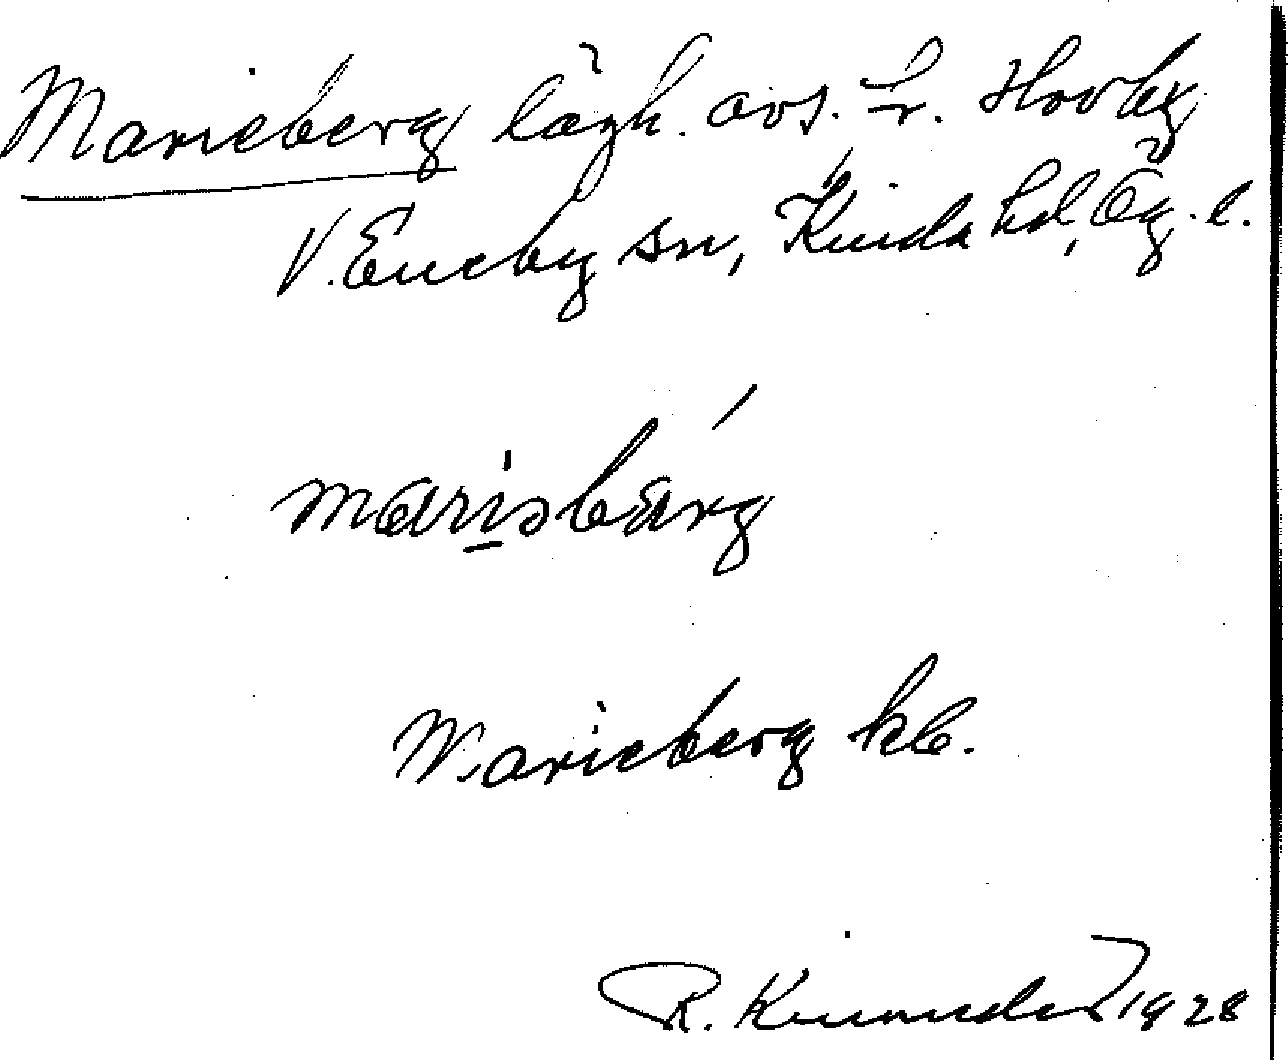 Marieberg lägh. avs. fr. Hovby
V. Eneby sn, Kinda hd, Ög. l.
marisbärg
Marieberg kb.
R. 1928